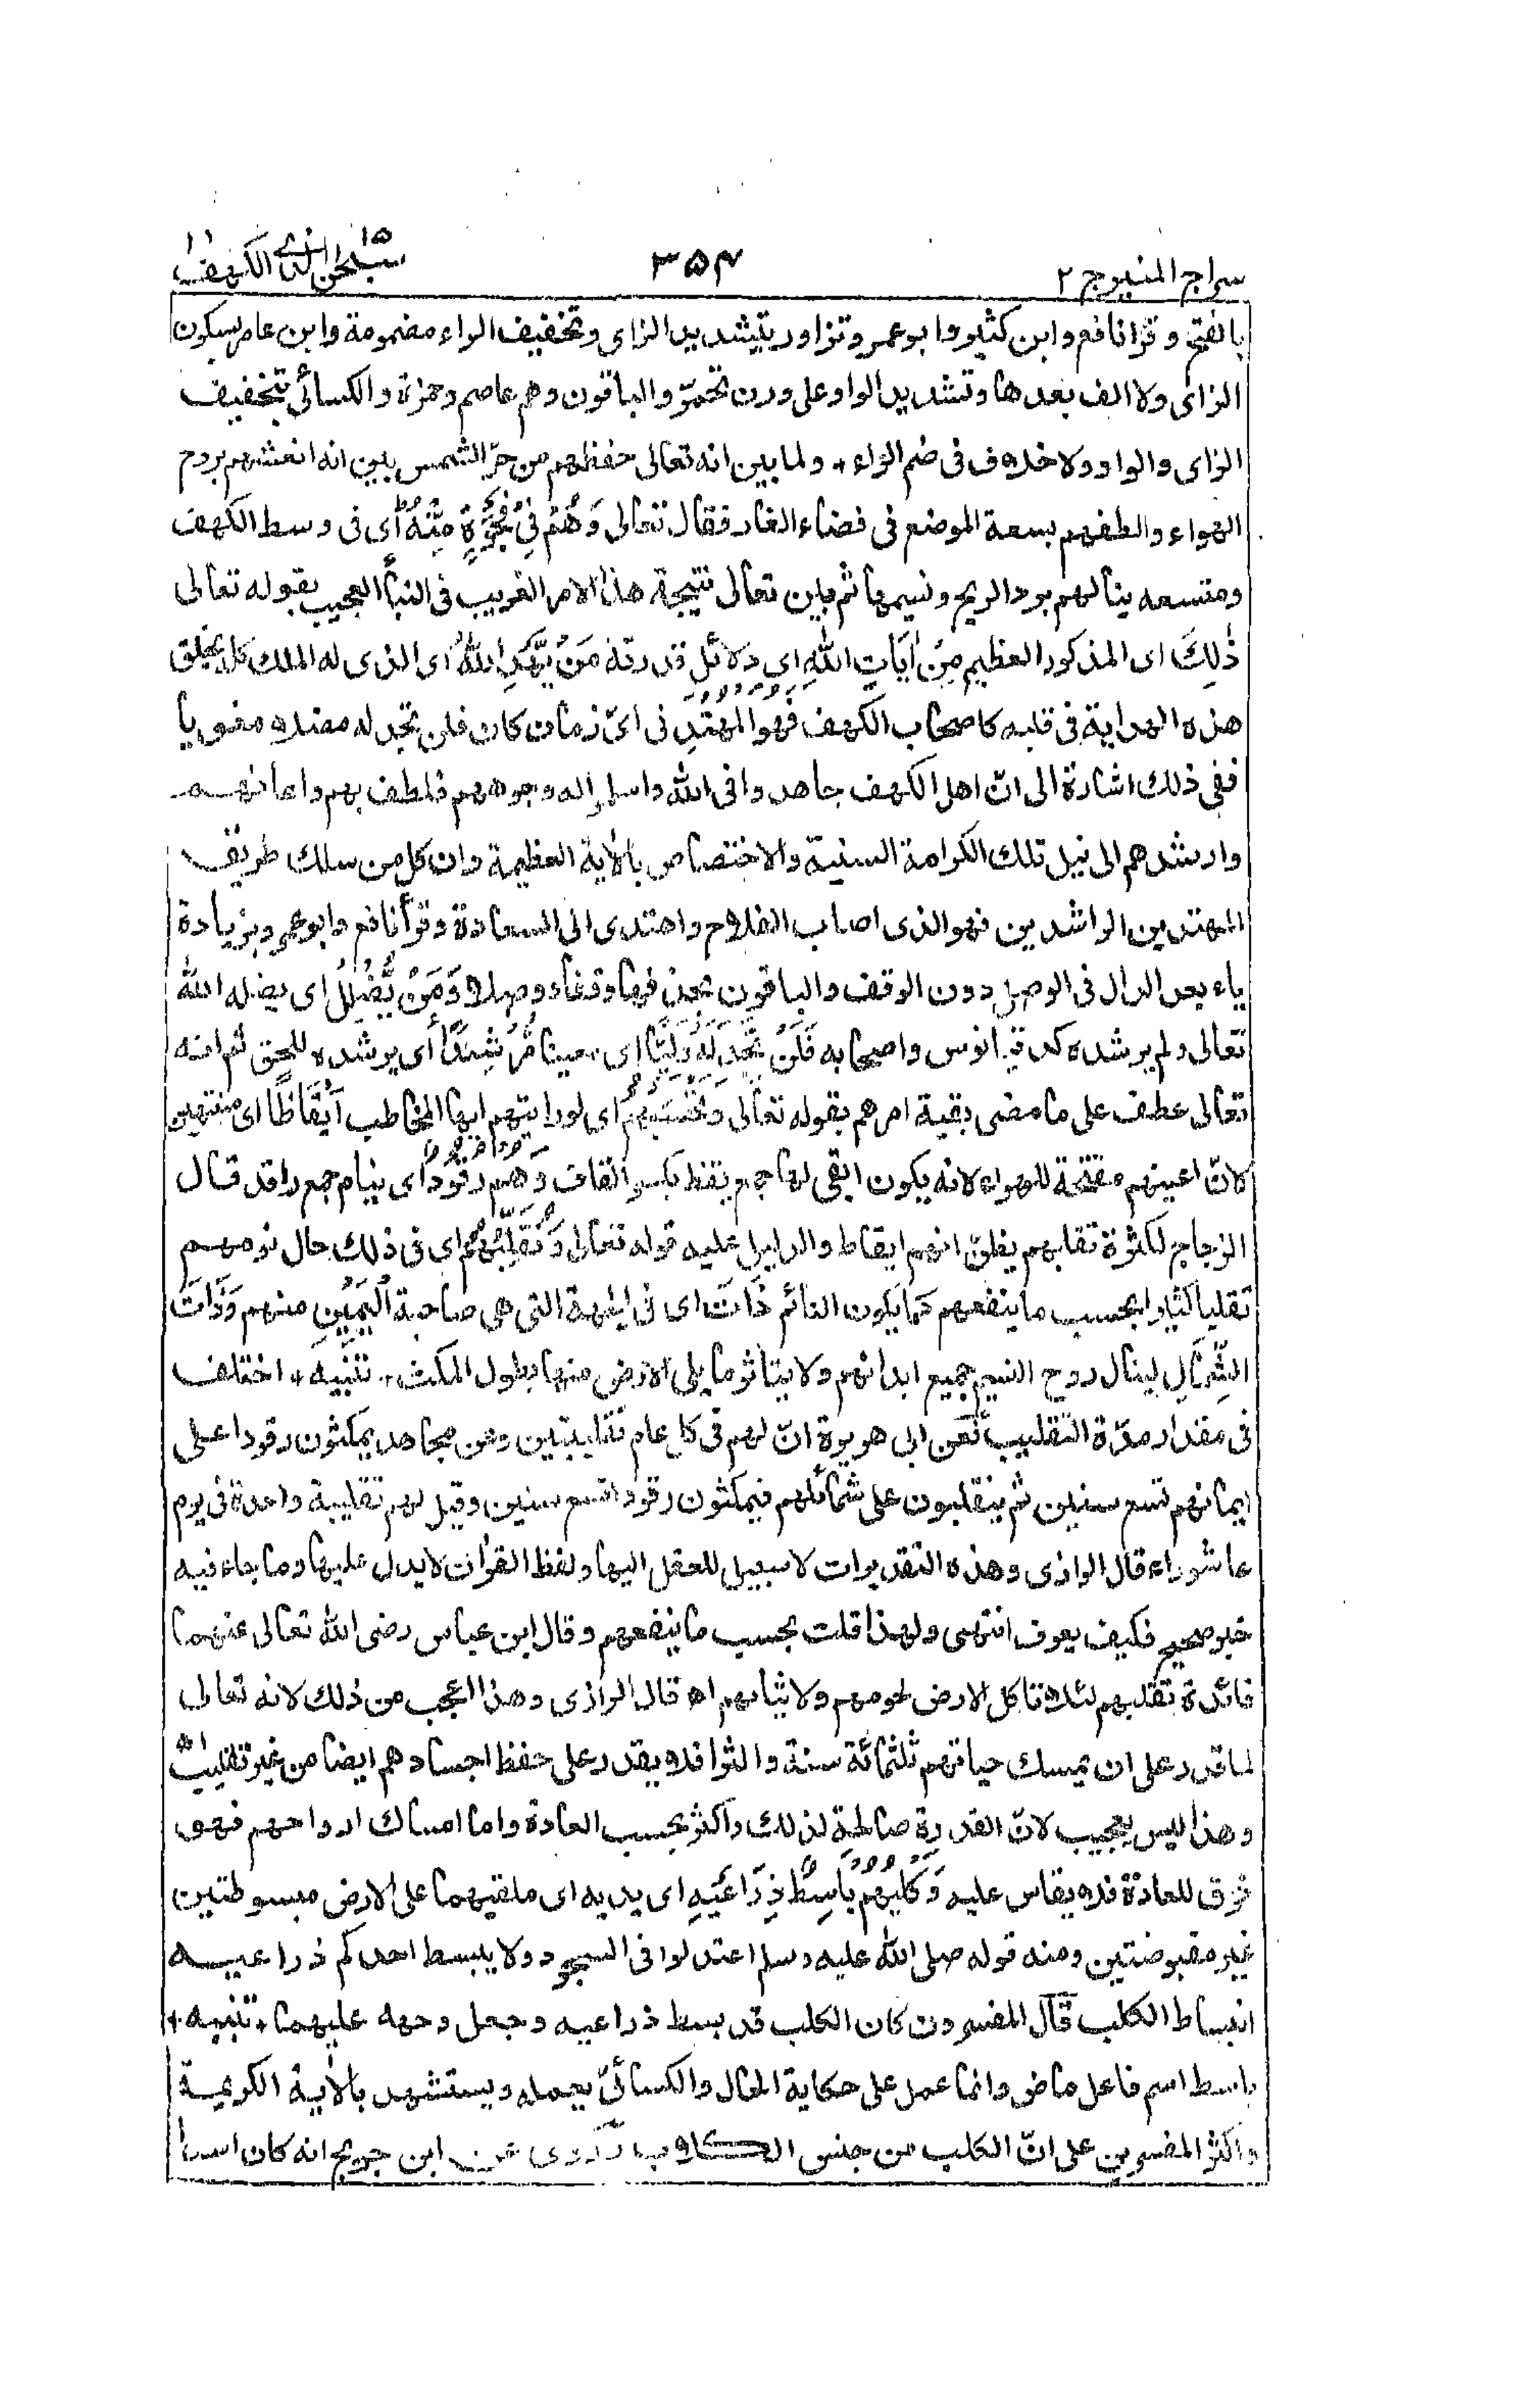 سراج المنير ج ٢
٣٥٤
سبحن الذى ١٥ الكهف ١٨
بالفتح وقرأ نافع وابن كثير وابو عمرو تزاور بتشديد الزاى وتخفيف الراء مضمومة وابن عامر بسكون
الزاى ولا الف بعدها وتشديد الواو على وزن تحمرّ والباقون وهم عاصم وحمزة والكسائى بتخفيف
الزاى والواو ولا خلاف فى ضم الراء + ولما بين انه تعالى حفظهم من حرّ الشمس بين انه انعشهم بروح
الهواء والطفهم بسعة الموضع فى فضاء الغار فقال تعالى وَهُمْ فِىْ فَجْوَةٍ مِّنْهُ اى فى وسط الكهف
ومتسعه ينالهم برد الريح ونسيمها ثم بين تعالى نتيجة هذا الامر الغريب فى النبأ العجيب بقوله تعالى
ذٰلِكَ اى المذكور العظيم مِنْ اٰيَاتِ اللهِ اى دلائل قدرته مَنْ يَّهْدِ اللهُ اى الذى له الملك كله يخلق
هذه الهداية فى قلبه كاصحاب الكهف فَهُوَ الْمُهْتَدِ فى اىّ زمان كان فلن تجد له مضلا مغويا
ففى ذلك اشارة الى انّ اهل الكهف جاهدوا فى الله واسلموا له وجوههم فلطف بهم واعانهم
وارشدهم الى نيل تلك الكرامة السنية والاختصاص بالاٰية العظيمة وان كل من سلك طريق
المهتدين الراشدين فهو الذى اصاب الفلاح واهتدى الى السعادة وقرأ نافع وابو عمرو بزيادة
ياء بعد الدال فى الوصل دون الوقف والباقون بحذفها وقفا ووصلا وَمَنْ يُّضْلِلْ اى يضله الله
تعالى ولم يرشده كدقيانوس واصحابه فَلَنْ تَجِدَ لَهٗ وَلِيًّا اى معينا مُّرْشِدًا اى يرشده للحق ثم انه
تعالى عطف على ما مضى بقية امرهم بقوله تعالى وَتَحْسَبُهُمْ اى لو رايتهم ايها المخاطب اَيْقَاظًا اى منتبهين
لانّ اعينهم مفتحة للهواء لانه يكون ابقى لها جمع يقظ بكسر القاف وَهُمْ رُقُوْدٌ اى نيام جمع راقد قال
الزجاج لكثرة تقلبهم يظنّ انهم ايقاظ والدليل عليه قوله تعالى وَنُقَلِّبُهُمْ اى فى ذلك حال نومهم
تقليبا كثيرا بحسب ما ينفعهم كما يكون النائم ذَاتَ اى فى الجهة التى هى صاحبة الْيَمِيْنِ منهم وَذَاتَ
الشِّمَالِ لينال روح النسيم جميع ابدانهم ولا يتأثر ما يلى الارض منها بطول المكث + تنبيه + اختلف
فى مقدار مدّة التقليب فعن ابى هريرة انّ لهم فى كل عام تقليبتين وعن مجاهد يمكثون رقودا على
ايمانهم تسع سنين ثم ينقلبون على شمائلهم فيمكثون رقودا تسع سنين وقيل لهم تقليبة واحدة فى يوم
عاشوراء قال الرازى وهذه التقديرات لا سبيل للعقل اليها ولفظ القراٰن لا يدل عليها وما جاء فيه
خبر صحيح فكيف يعرف انتهى ولهذا قلت بحسب ما ينفعهم وقال ابن عباس رضى الله تعالى عنهما
فائدة تقلبهم لئلا تاكل الارض لحومهم ولا ثيابهم اه قال الرازى وهذا اعجب من ذلك لانه تعالى
لما قدر على ان يمسك حياتهم ثلثمائة سنة واكثر افلا يقدر على حفظ اجسادهم ايضا من غير تقليب اه
وهذا ليس بعجيب لانّ القدرة صالحة لذلك واكثر بحسب العادة واما امساك ارواحهم فهو
خرق للعادة فلا يقاس عليه وَكَلْبُهُمْ بَاسِطٌ ذِرَاعَيْهِ اى يديه اى ملقيهما على الارض مبسوطتين
غير مقبوضتين ومنه قوله صلى الله عليه وسلم اعتدلوا فى السجود ولا يبسط احدكم ذراعيه
انبساط الكلب قال المفسرون كان الكلب قد بسط ذراعيه وجعل وجهه عليهما + تنبيه +
باسط اسم فاعل ماض وانما عمل على حكاية الحال والكسائىّ يعمله ويستشهد بالاٰية الكريمة
واكثر المفسرين على انّ الكلب من جنس الكلاب وروى عن ابن جريج انه كان اسدا